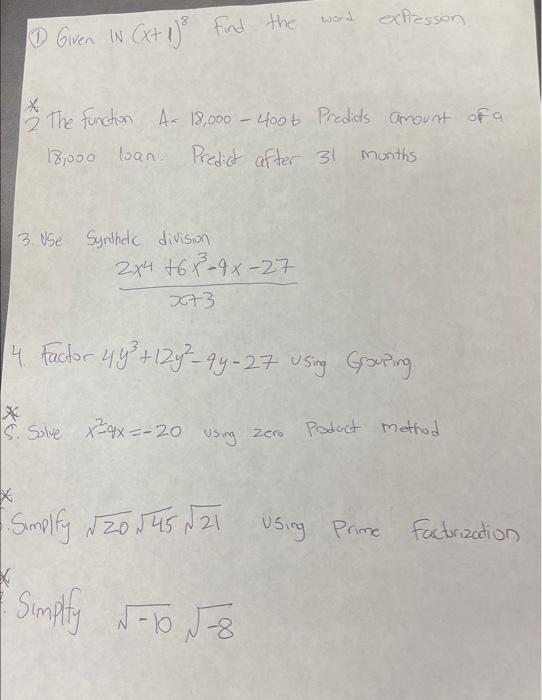 ① Given IN (x+1)⁸ Find the word expression
* 2 The function A= 18,000 - 400t Predicts amount of a
18,000 loan. Predict after 31 months
3. Use Synthetc division
2x4 +6x³-9x-27
x+3
4. Factor 4y³+12y²-9y-27 using Grouping
* 5. Solve x²-9x=-20 using zero Product method
* . Simplfy √20 √45 √21 Using Prime factorization
* . Simplfy √-10 √-8